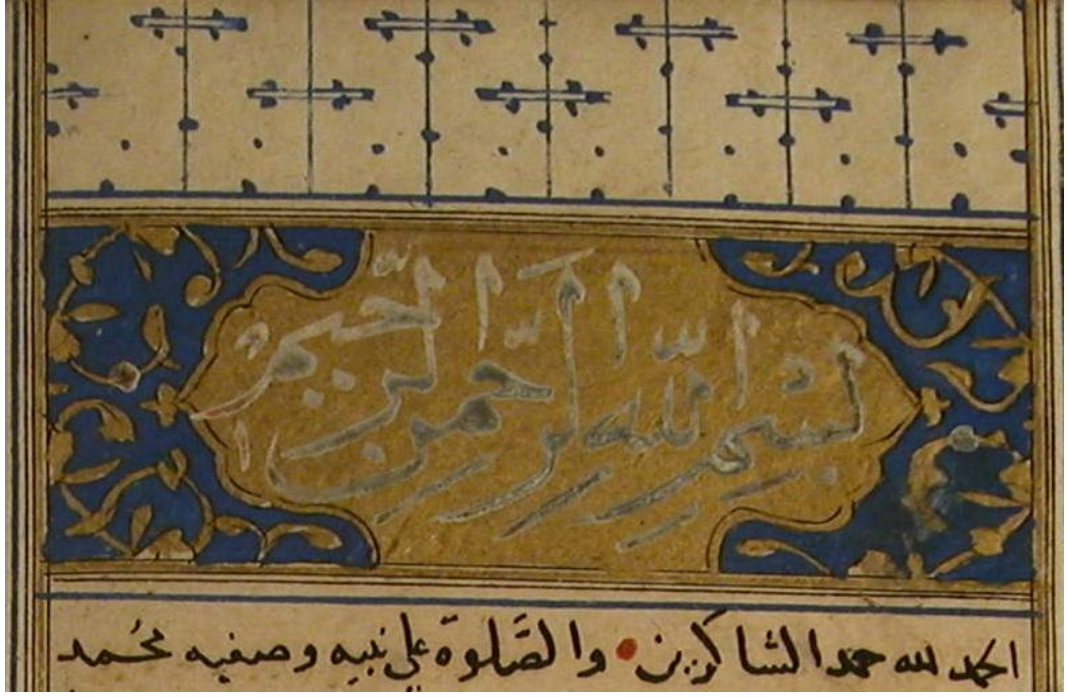 بسم الله الرحمن الرحيم
الحمد لله حمد الشاكرين والصَّلوة على نبيه وصفيه محُمد